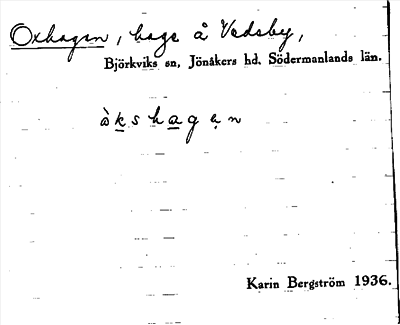 Oxhagen, hage å Vedeby,
Björkviks sn, Jönåkers hd. Södermanlands län.
òkshagạn
Karin Bergström 1936.